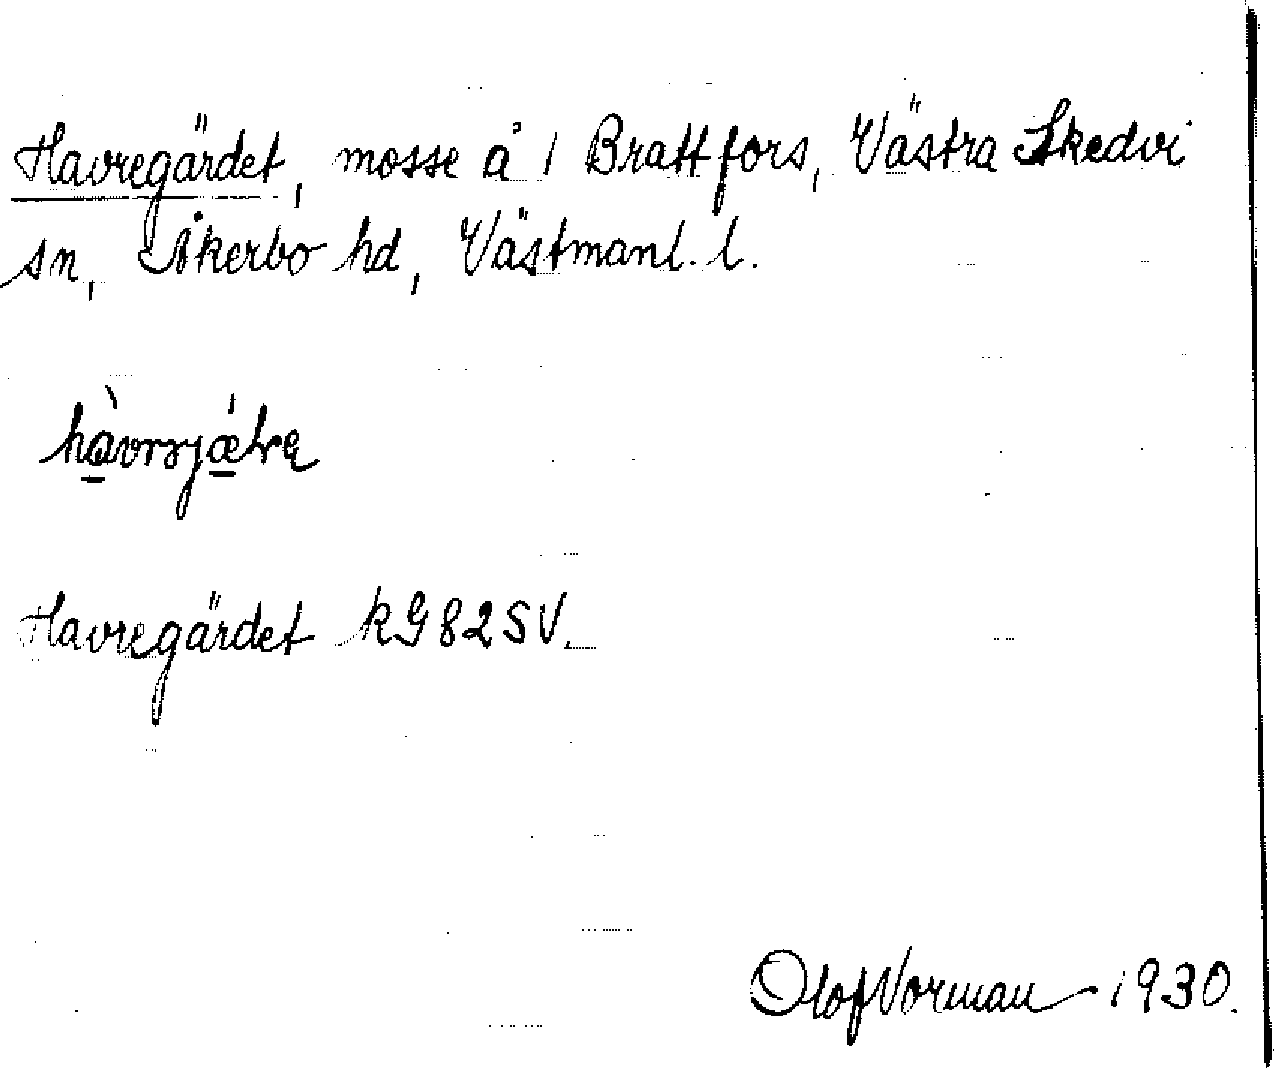 Havregärdet, mosse å 1 Brattfors, Västra Skedvi
sn, Åkerbo hd, Västmanl. l.
Havregärdet kG82SV.
Olof Vorman 1930.